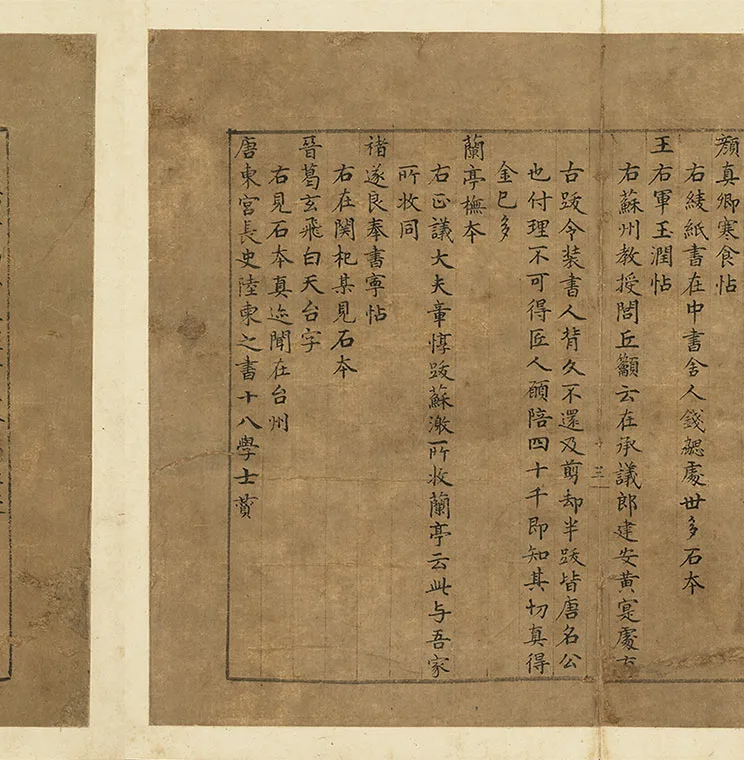 顔真卿寒食帖
右綾紙書在中書舍人錢勰處世多石本
王右軍王潤帖
右蘇州教授閭丘籲云在承議郎建安黃寔處古
古跋令装書人背久不還及剪却半跋皆唐名公
也付理不可得匠人願陪四十千即知其切真得
金已多
蘭亭橅本
右正議大夫章惇跋蘇激所收蘭亭云此与吾家
所收同
褚遂良奉書寧帖
右在関杞某見石本
晉葛玄飛白天台字
右見石本真迹聞在台州
唐東宮長史陸東之書十八學士贊
三